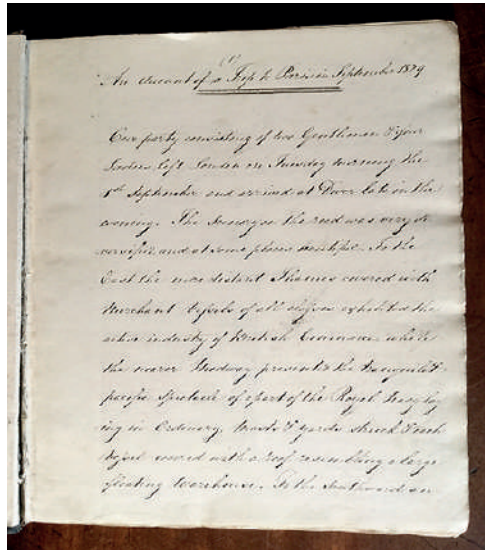 (1)
An Account of a Trip to Paris in September 1829
Our party consisting of two Gentlemen & four
Ladies left London on Tuesday morning the
1st September and arrived at Dover late in the
evening. The Scenery on the road was very di
versified and at some places beautiful. To the
East the more distant Thames covered with
Merchant Vessels of all exhibited the
active industry of British Commerce while
the nearer Medway presents the tranquil &
pacific Spectacle of a part of the Royal Navy ly
ing in Ordinary, Masts & Yards struck & each
Vessel covered with a roof resembling a large
floating Warehouse. To the Southward an